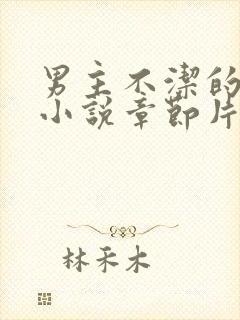 男主不潔的
小說章節片
林禾木